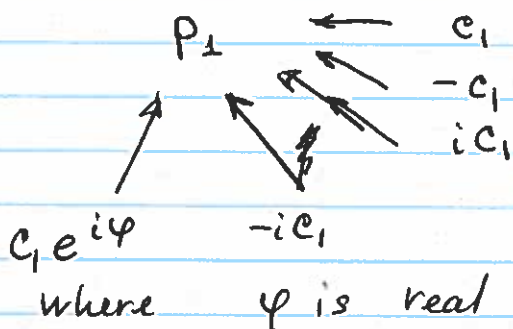 P₁ c₁
-c₁
ic₁
C₁e^{iφ} -iC₁
where φ is real